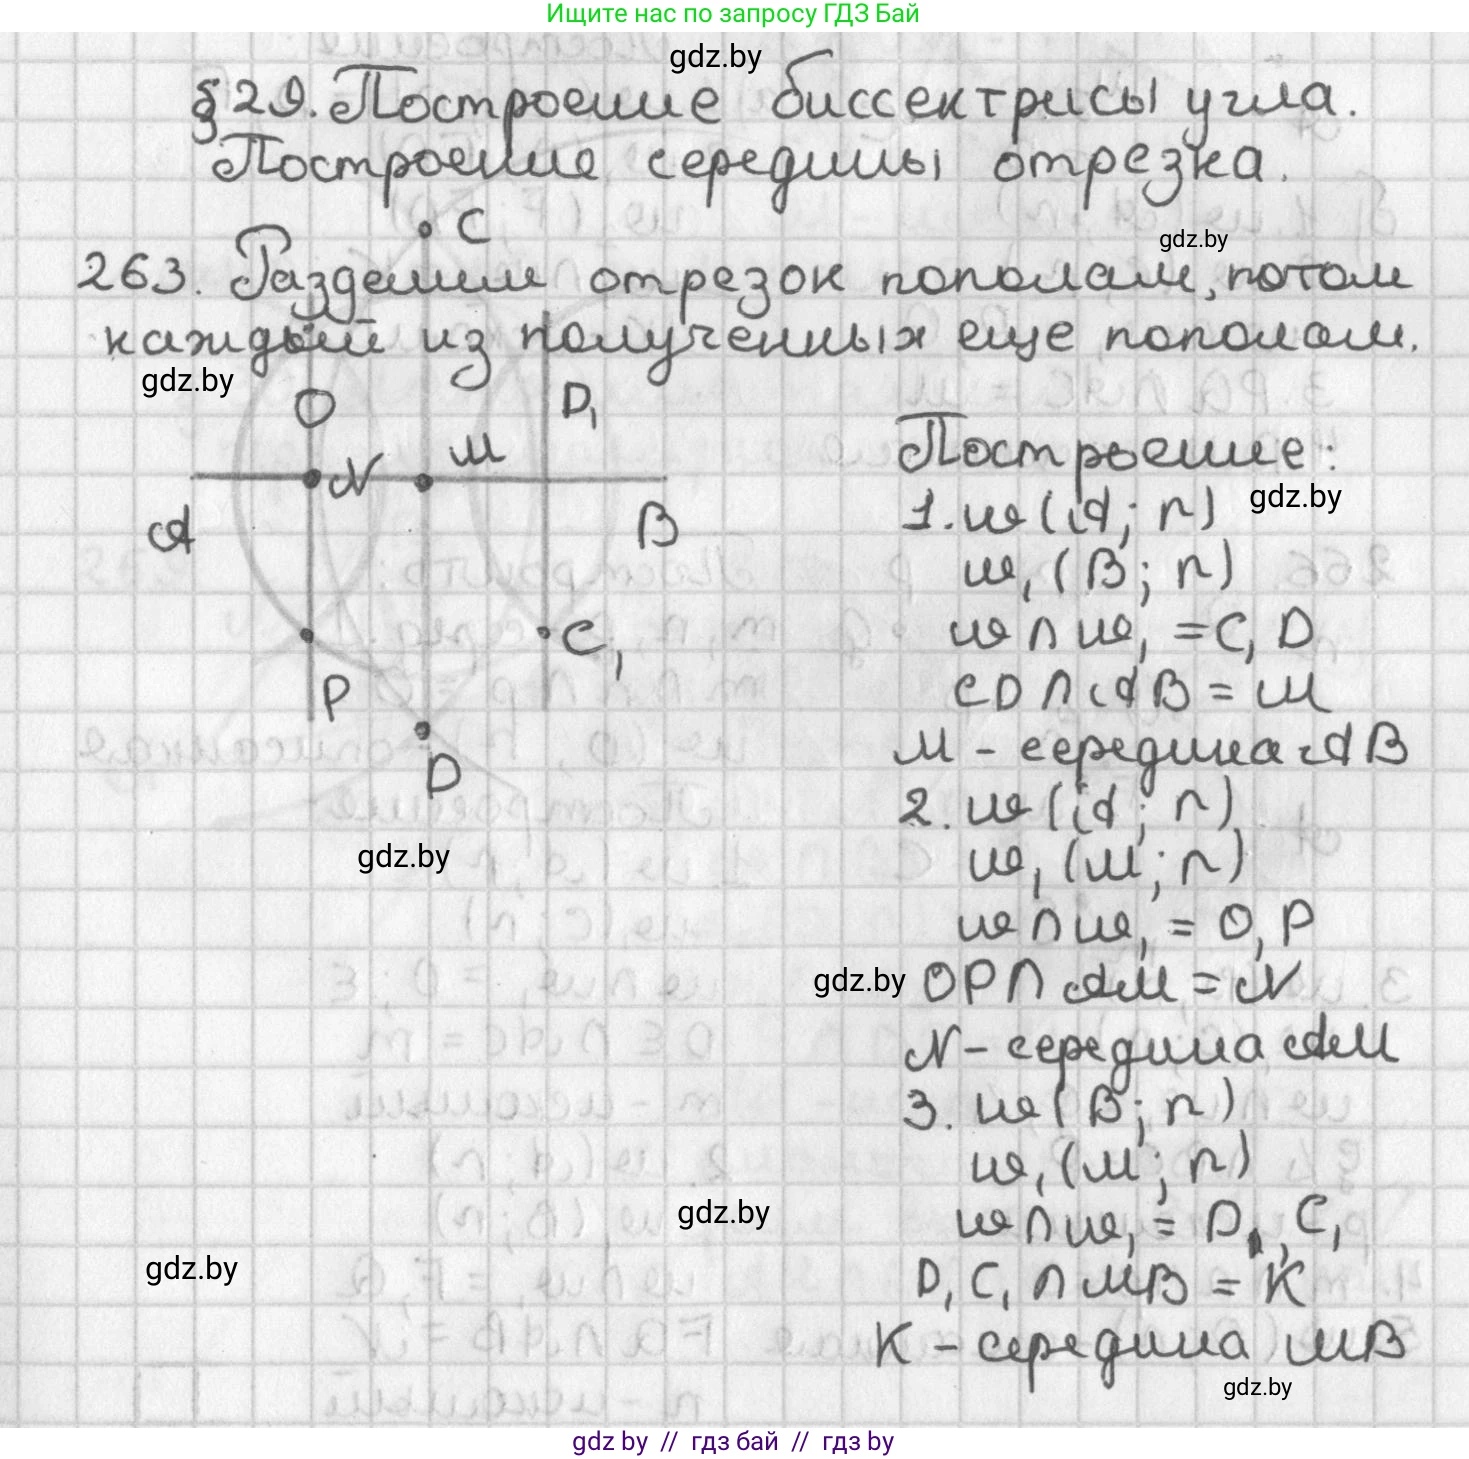 Ищите нас по запросу ГДЗ Бай
gdz.by
§29. Построение биссектрисы угла.
Построение середины отрезка.
C
gdz.by
263. Разделим отрезок пополам, потом
каждый из полученных еще пополам.
gdz.by
O
D₁
N
M
A
B
P
C₁
D
gdz.by
Построение:
gdz.by
1. ω(A; r)
ω₁(B; r)
ω∩ω₁=C, D
CD∩AB=M
M - середина AB
2. ω(A; r)
ω₁(M; r)
ω∩ω₁=O, P
gdz.by
OP∩AM=N
N - середина AM
3. ω(B; r)
ω₁(M; r)
gdz.by
ω∩ω₁=D₁, C₁
gdz.by
D₁C₁∩MB=K
K - середина MB
gdz.by
gdz by // gdz бай // gdz by